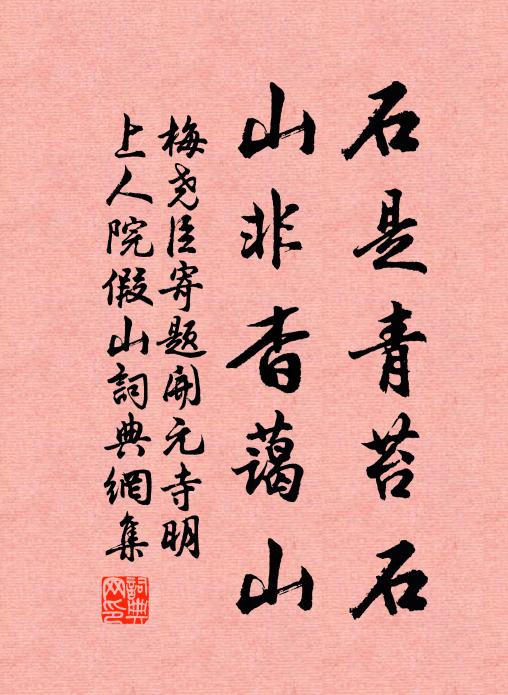 石是青苔石
山非杳蔼山
梅尧臣寄题开元寺明
上人院假山詞典網集
詞典网印